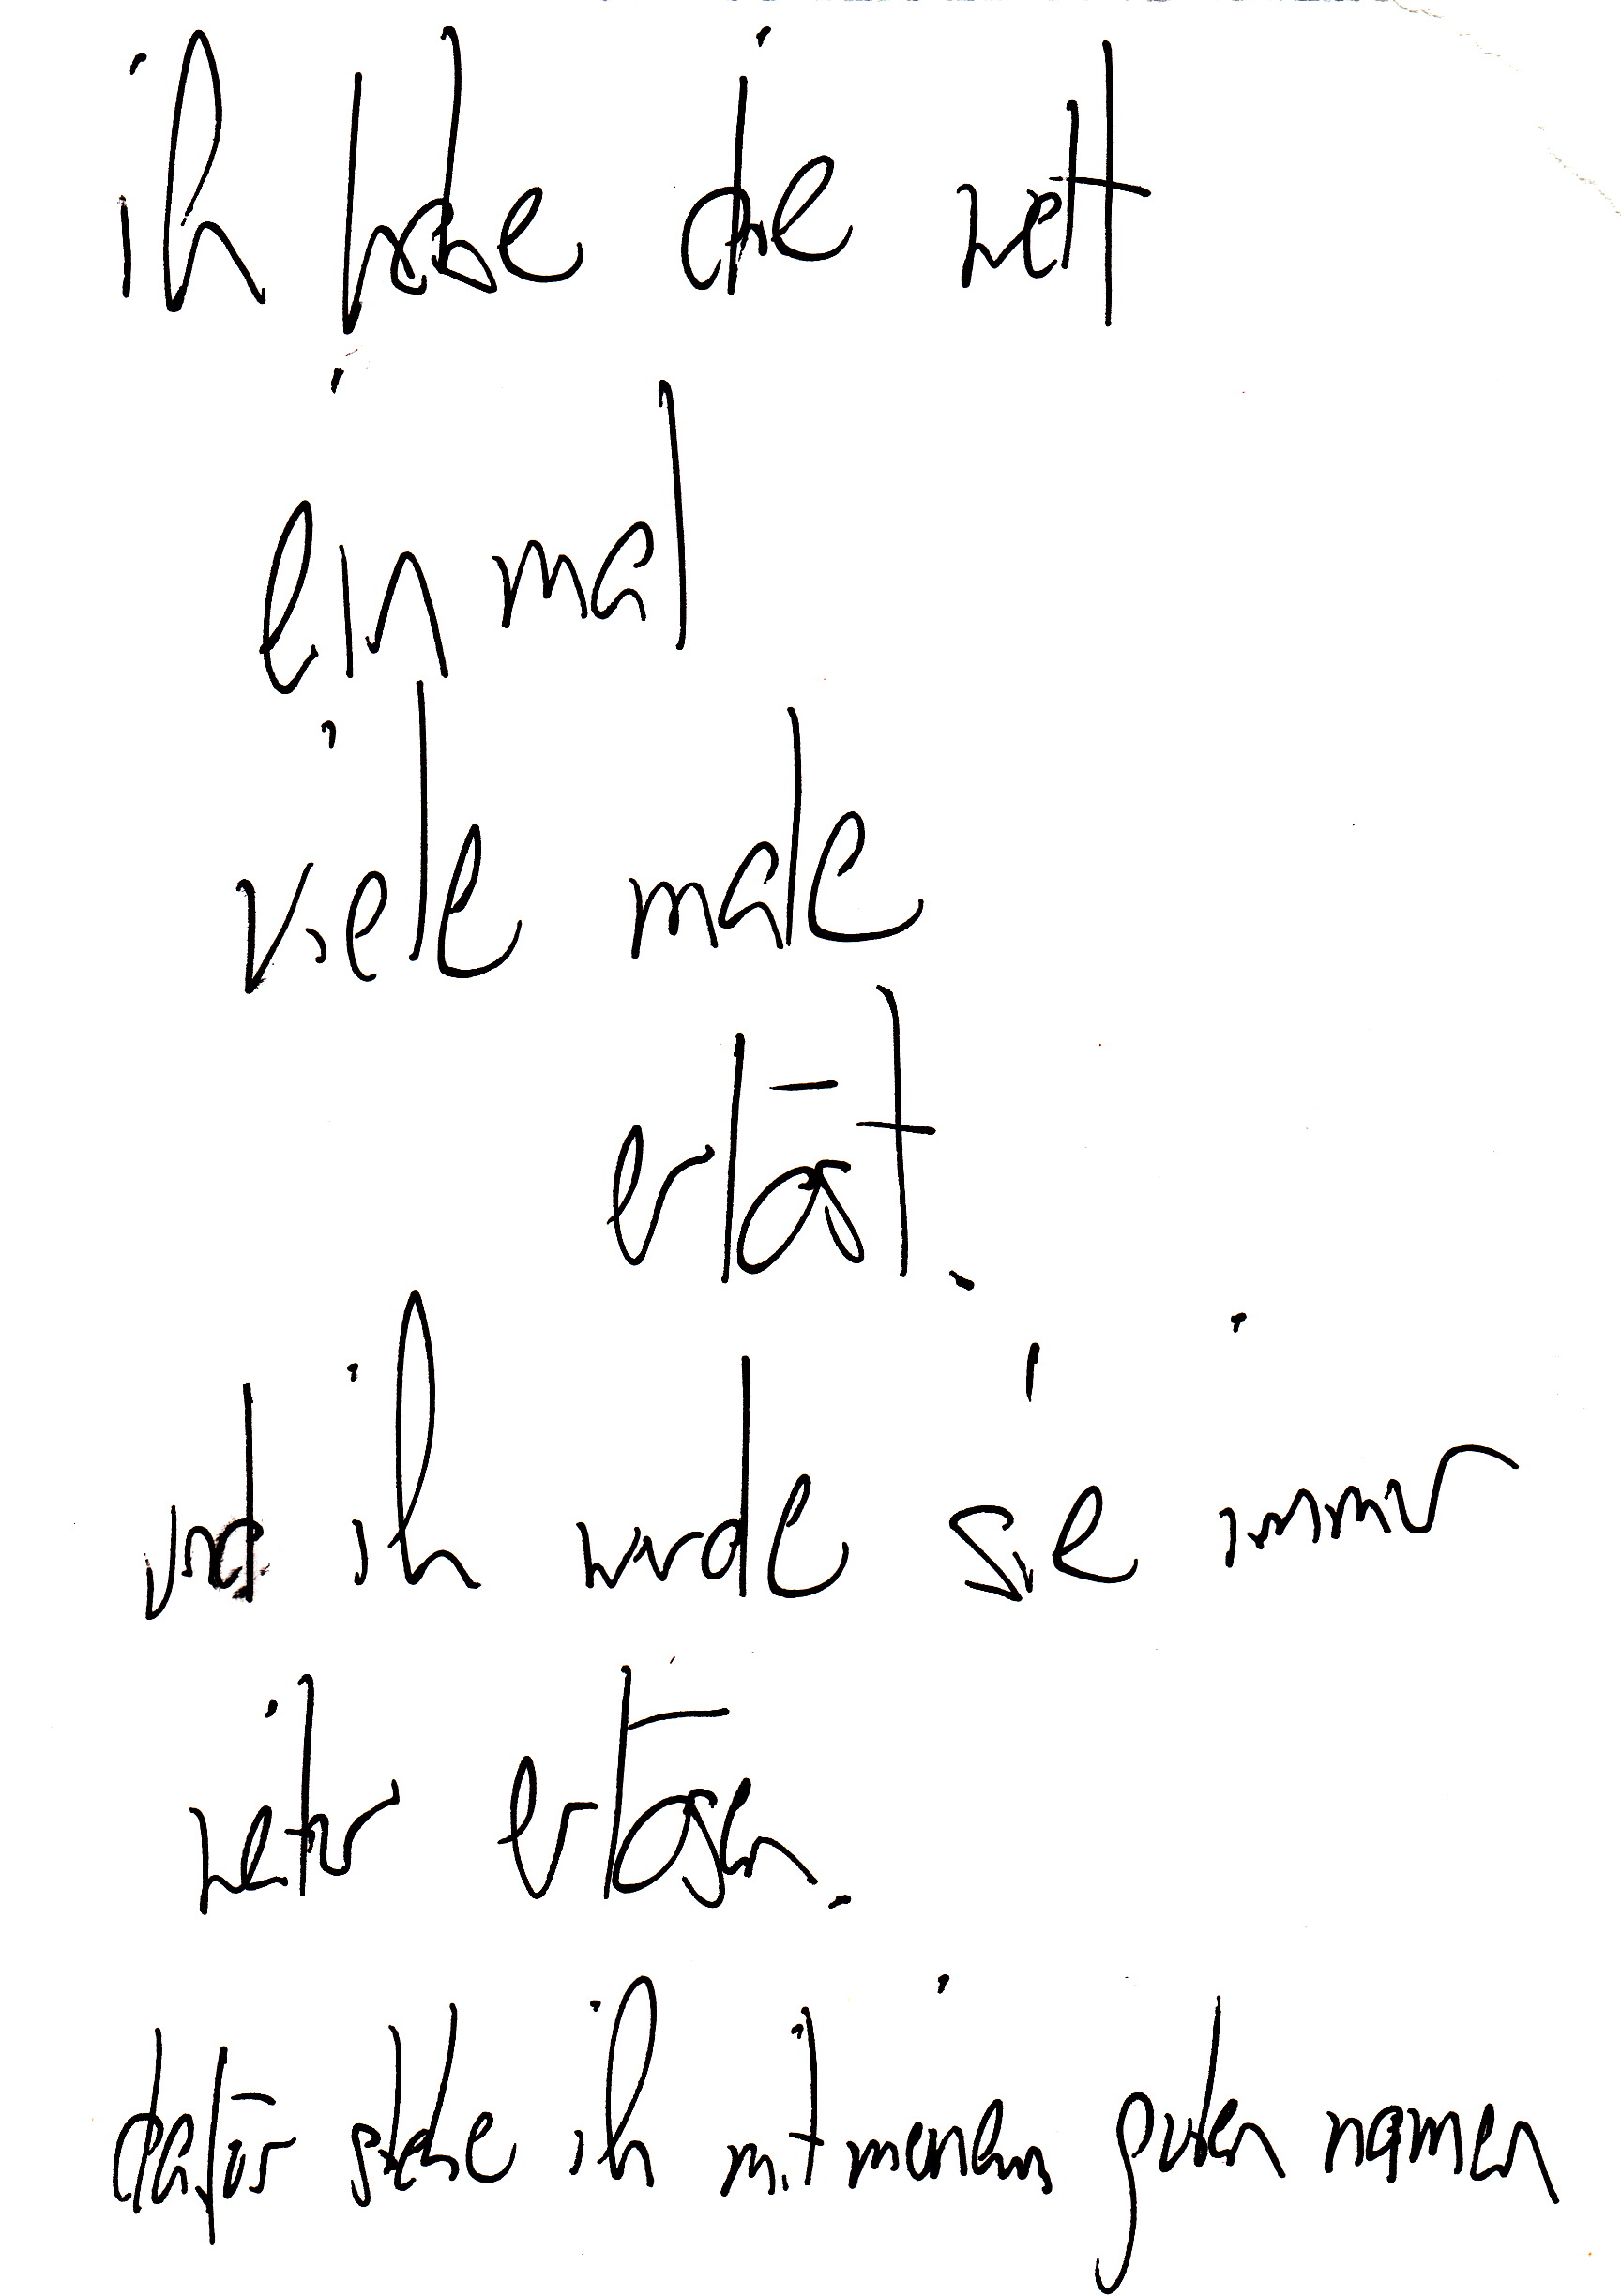 ich habe die welt
ein mal
viele male
erlöst.
und ich werde sie immer
weiter erlösen.
dafür stehe ich mit meinem guten namen